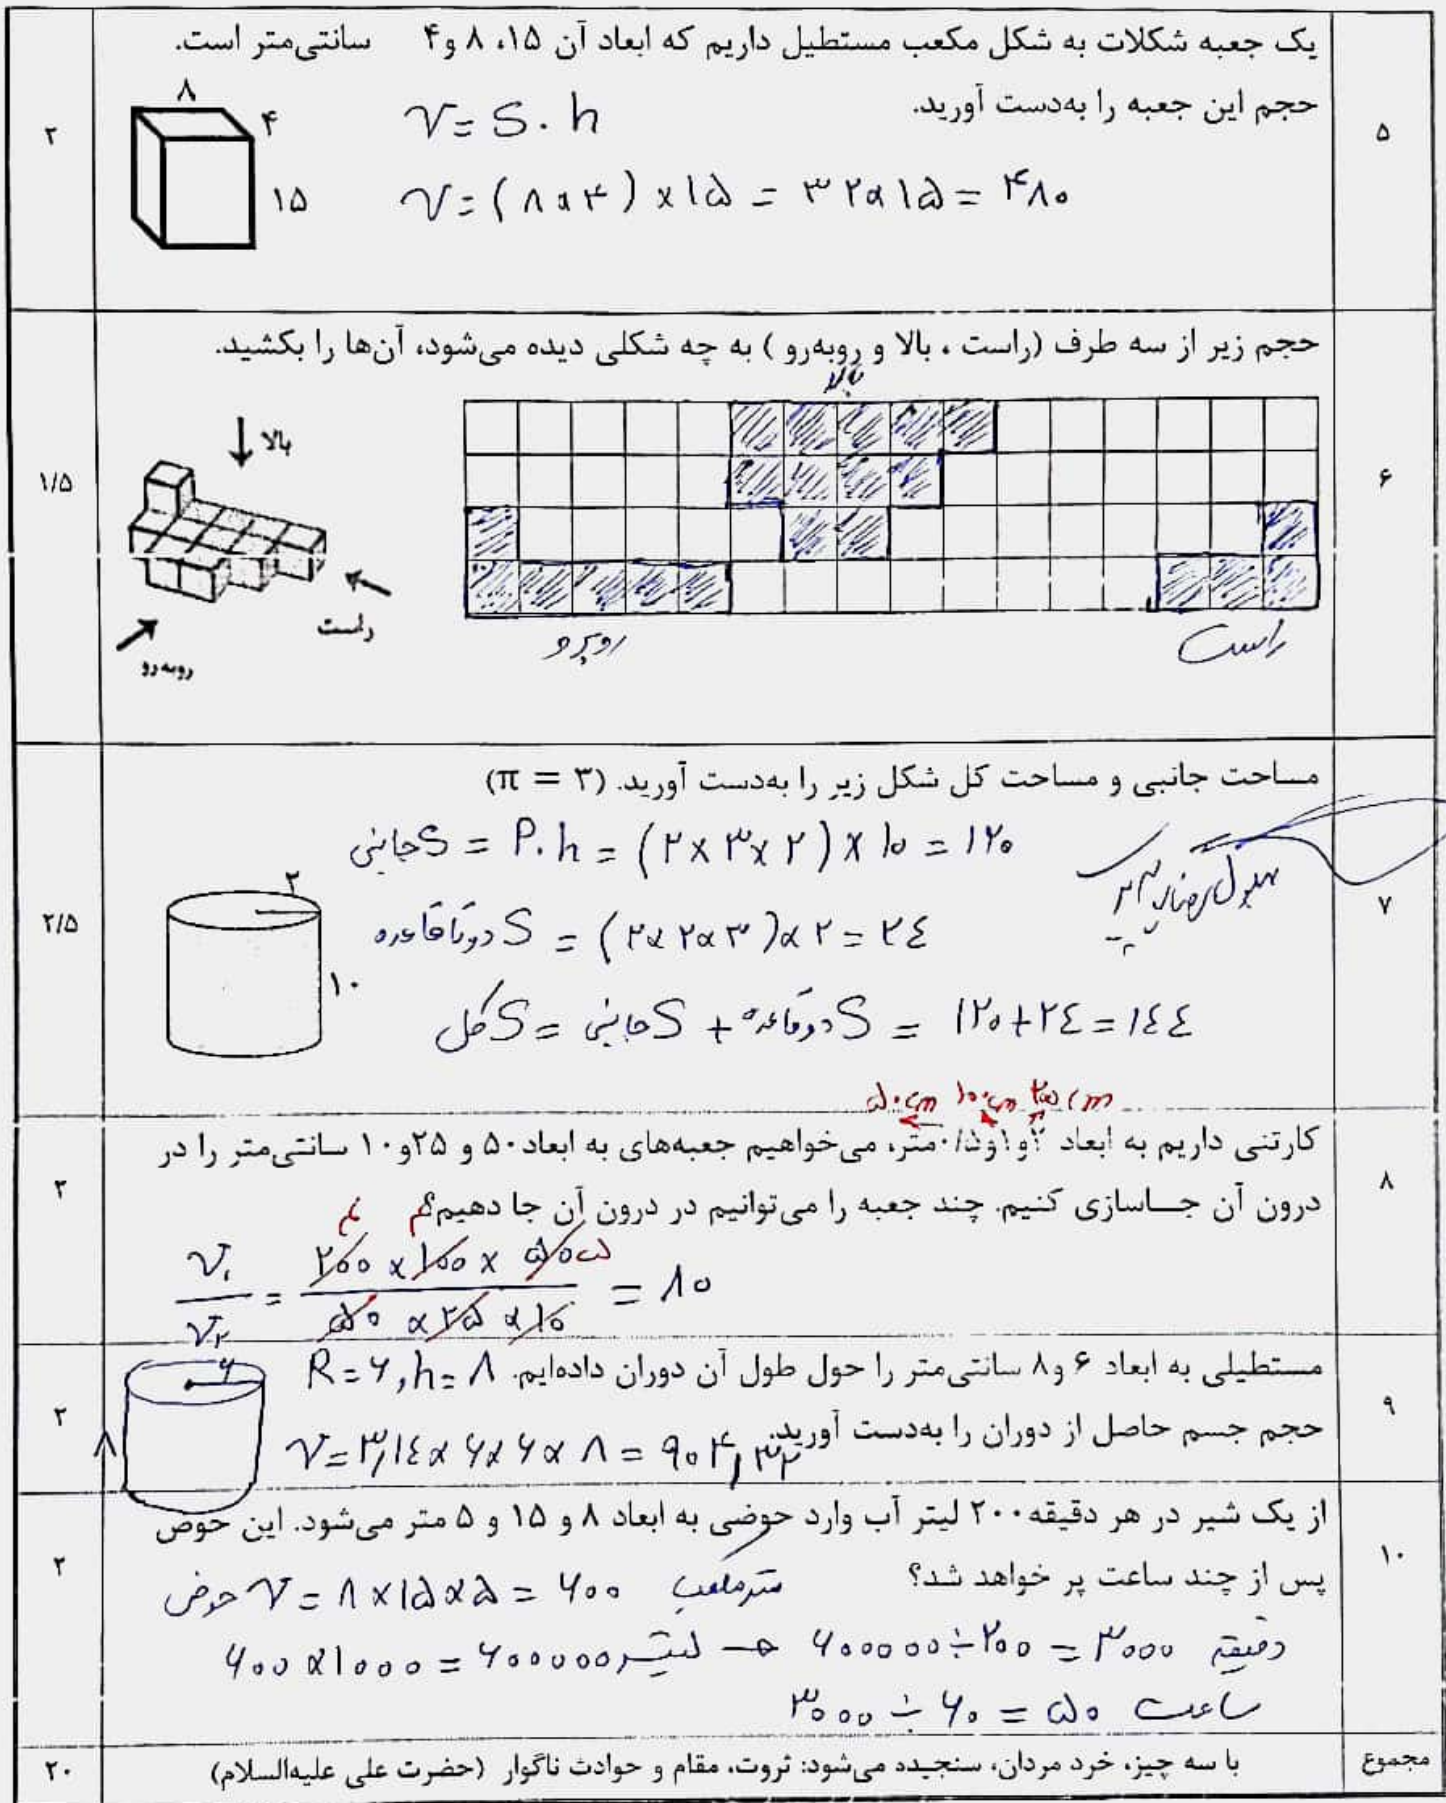 ۵
یک جعبه شکلات به شکل مکعب مستطیل داریم که ابعاد آن ۱۵، ۸ و۴ سانتی‌متر است.
حجم این جعبه را به‌دست آورید.
۲
۸
۴
۱۵
V = S . h
V = (۸ × ۴) × ۱۵ = ۳۲ × ۱۵ = ۴۸۰
۶
حجم زیر از سه طرف (راست ، بالا و روبه‌رو ) به چه شکلی دیده می‌شود، آن‌ها را بکشید.
۱/۵
بالا
بالا
راست
روبه‌رو
روبرو
راست
۷
مساحت جانبی و مساحت کل شکل زیر را به‌دست آورید. (π = ۳)
۲/۵
۲
۱۰
S جانبی = P . h = (۲ × ۳ × ۲) × ۱۰ = ۱۲۰
S دوتا قاعده = (۲ × ۲ × ۳) × ۲ = ۲٤
S کل = S جانبی + S دوقاعده = ۱۲۰ + ۲٤ = ۱٤٤
۵۰cm ۱۰۰cm ۲۰۰cm
۸
کارتنی داریم به ابعاد ۲و۱و۰/۵متر، می‌خواهیم جعبه‌های به ابعاد۵۰ و ۲۵و۱۰ سانتی‌متر را در
درون آن جـاسازی کنیم. چند جعبه را می‌توانیم در درون آن جا دهیم؟
۲
V۱ / V۲ = ۲۰۰ × ۱۰۰ × ۵۰ / ۵۰ × ۲۵ × ۱۰ = ۸۰
۹
مستطیلی به ابعاد ۶ و۸ سانتی‌متر را حول طول آن دوران داده‌ایم. R = ۶ , h = ۸
حجم جسم حاصل از دوران را به‌دست آورید.
۲
۶
V = ۳,۱٤ × ۶ × ۶ × ۸ = ۹۰۴,۳۲
۱۰
از یک شیر در هر دقیقه ۲۰۰ لیتر آب وارد حوضی به ابعاد ۸ و ۱۵ و ۵ متر می‌شود. این حوض
پس از چند ساعت پر خواهد شد؟
۲
V حوض = ۸ × ۱۵ × ۵ = ۶۰۰ مترمکعب
۶۰۰ × ۱۰۰۰ = ۶۰۰۰۰۰ لیتر → ۶۰۰۰۰۰ ÷ ۲۰۰ = ۳۰۰۰ دقیقه
۳۰۰۰ ÷ ۶۰ = ۵۰ ساعت
مجموع
با سه چیز، خرد مردان، سنجیده می‌شود: ثروت، مقام و حوادث ناگوار (حضرت علی علیه‌السلام)
۲۰